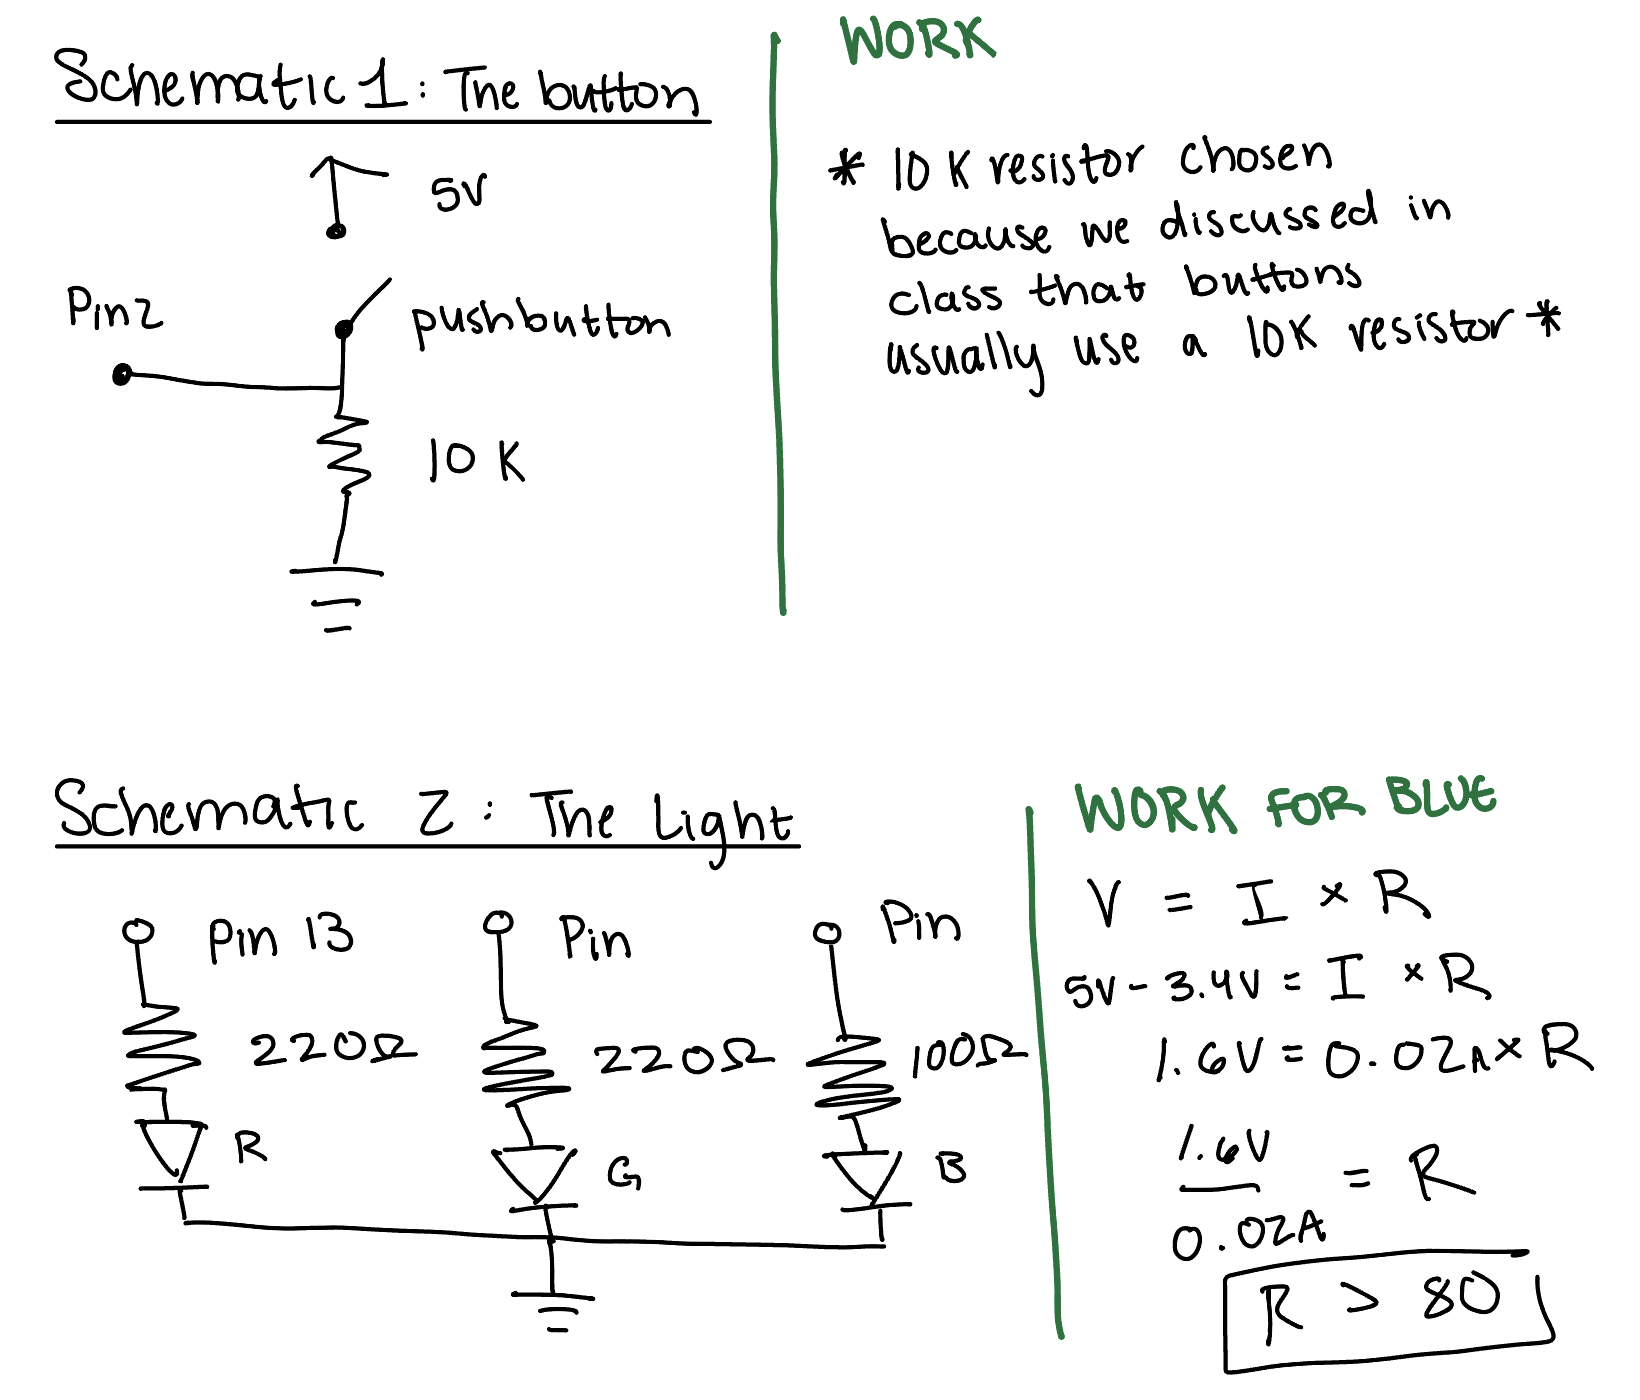 Schematic 1: The button
5V
Pin2
pushbutton
10 K
WORK
* 10 K resistor chosen
because we discussed in
class that buttons
usually use a 10K resistor *
Schematic 2: The Light
Pin 13
Pin
Pin
220Ω
220Ω
100Ω
R
G
B
WORK FOR BLUE
V = I × R
5V - 3.4V = I × R
1.6V = 0.02A × R
1.6V
= R
0.02A
R > 80